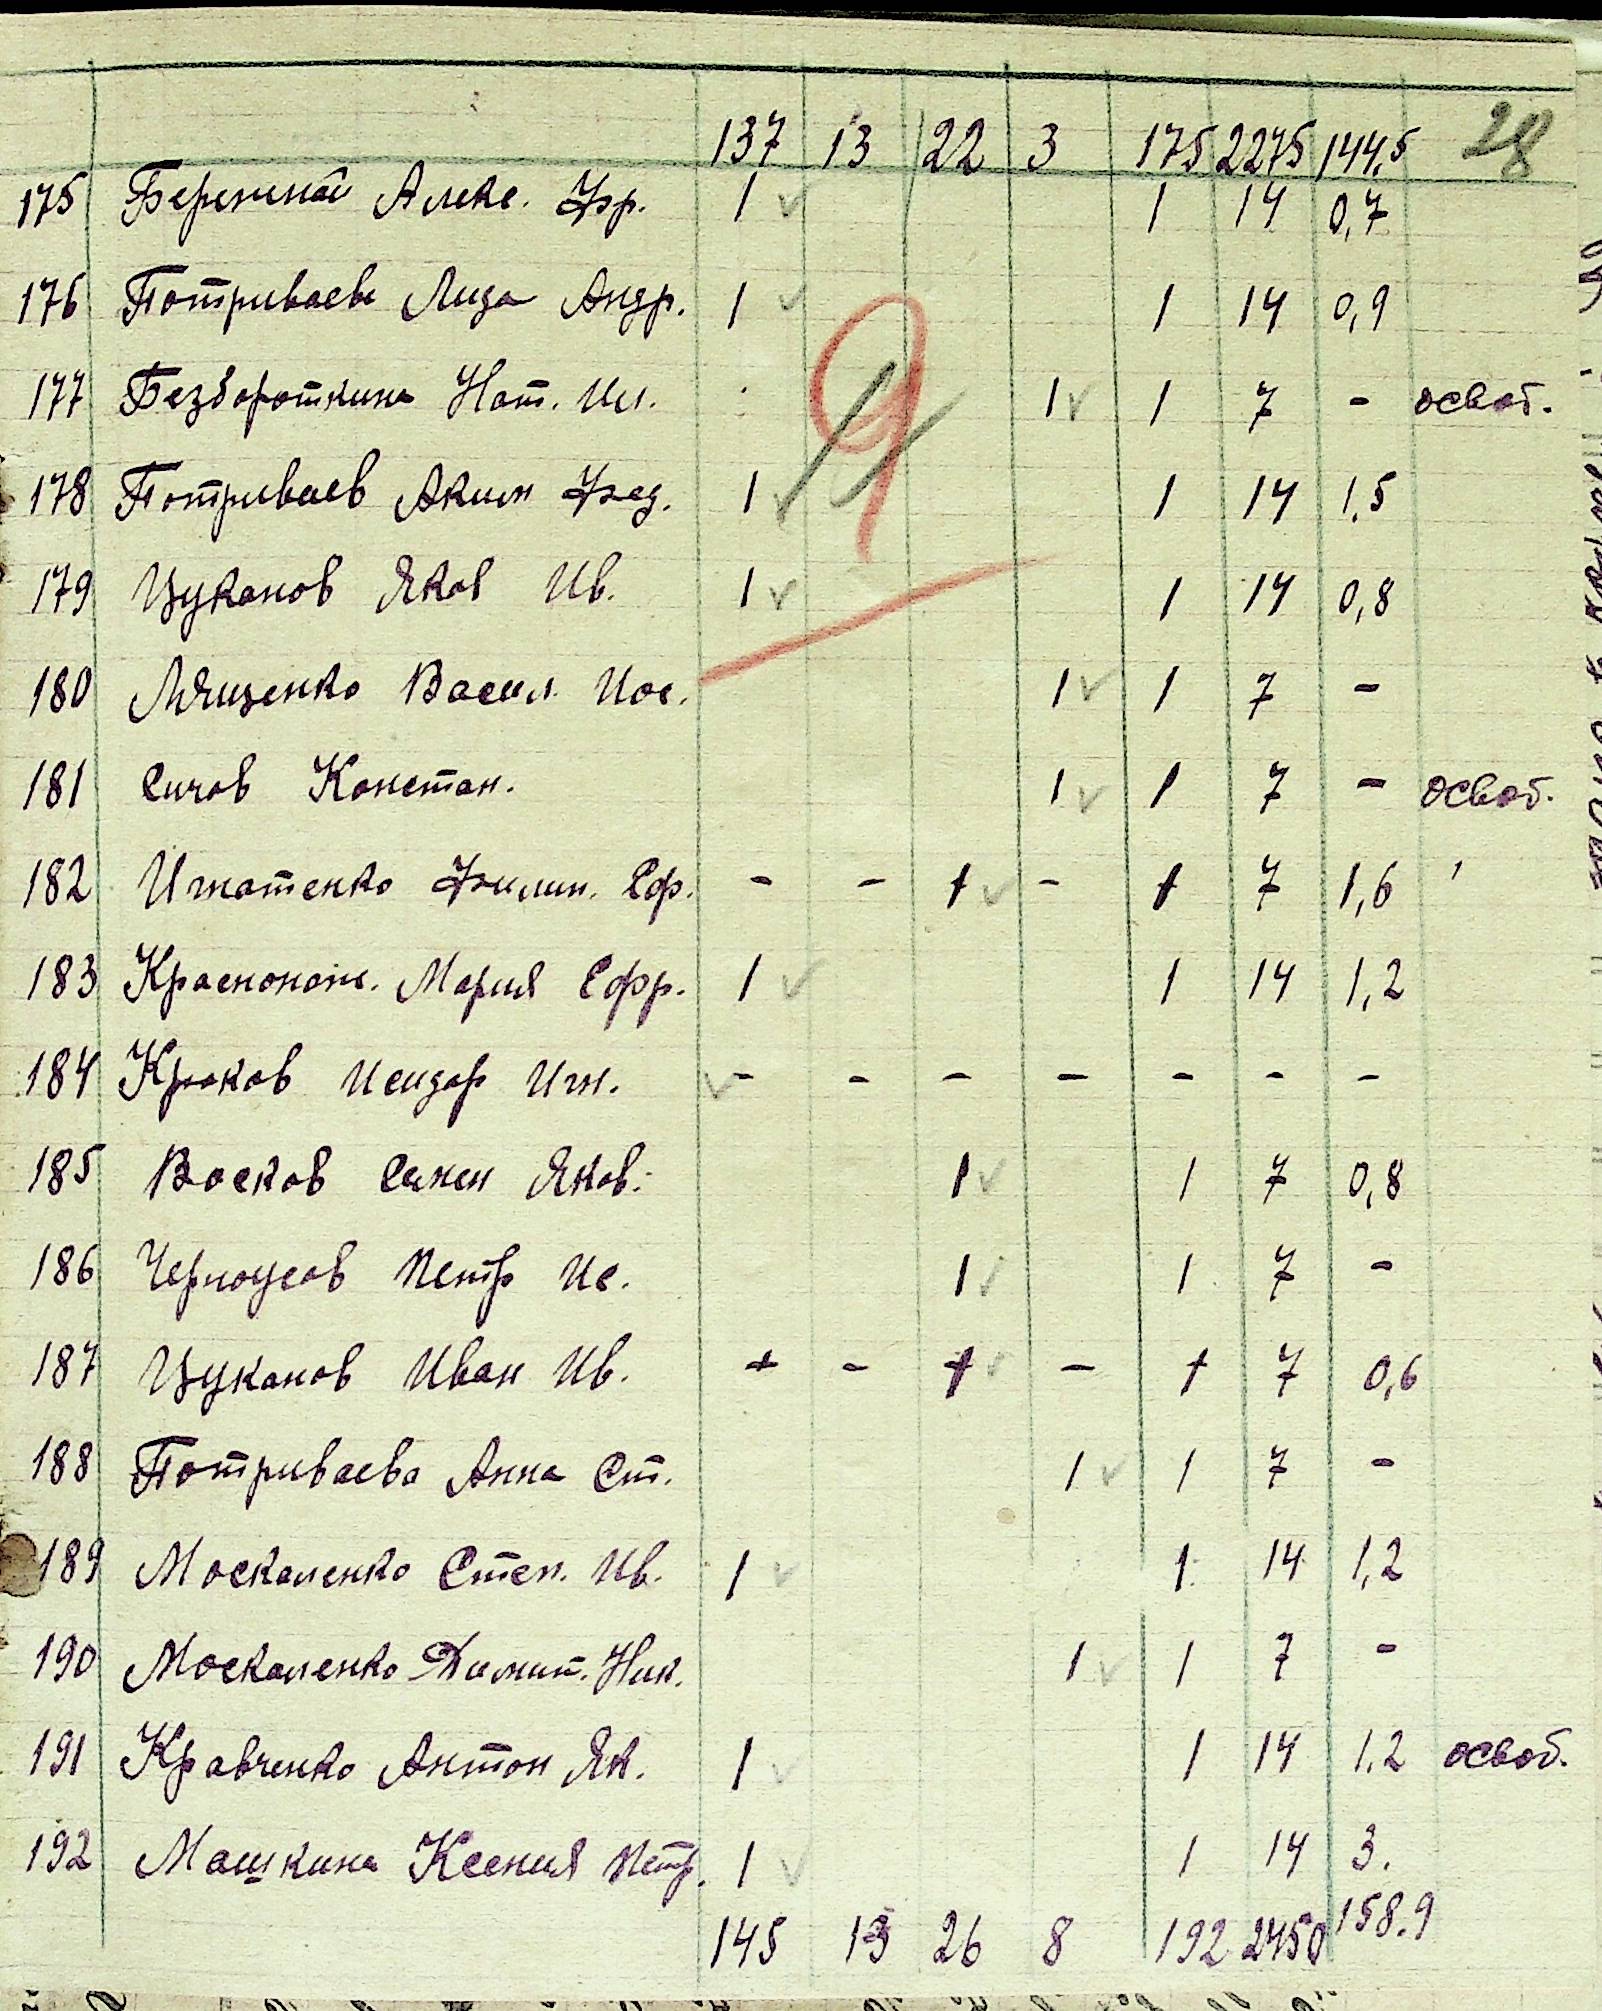 137 13 22 3 175 2275 144,5 28
175 Бережной Алекс. Фр. 1 1 14 0,7
176 Потриваева Лида Андр. 1 1 14 0,9
177 Беззвороткина Нат. Ил. 1 1 7 - освоб.
178 Потриваев Аким Фед. 1 1 14 1,5
179 Цуканов Яков Ив. 1 1 14 0,8
180 Лященко Васил. Иос. 1 1 7 -
181 Сичов Констан. 1 1 7 - освоб.
182 Игнатенко Филип. Еф. - - 1 - 1 7 1,6
183 Краснопож. Мария Ефр. 1 1 14 1,2
184 Крюков Исидор Игн. - - - - - - -
185 Восков Семен Яков. 1 1 7 0,8
186 Черноусов Петр Ис. 1 1 7 -
187 Цуканов Иван Ив. - - 1 - 1 7 0,6
188 Потриваева Анна Ст. 1 1 7 -
189 Москаленко Степ. Ив. 1 1 14 1,2
190 Москаленко Димит. Ник. 1 1 7 -
191 Кравченко Антон Як. 1 1 14 1.2 освоб.
192 Машкина Ксения Петр. 1 1 14 3.
145 13 26 8 192 2450 158.9